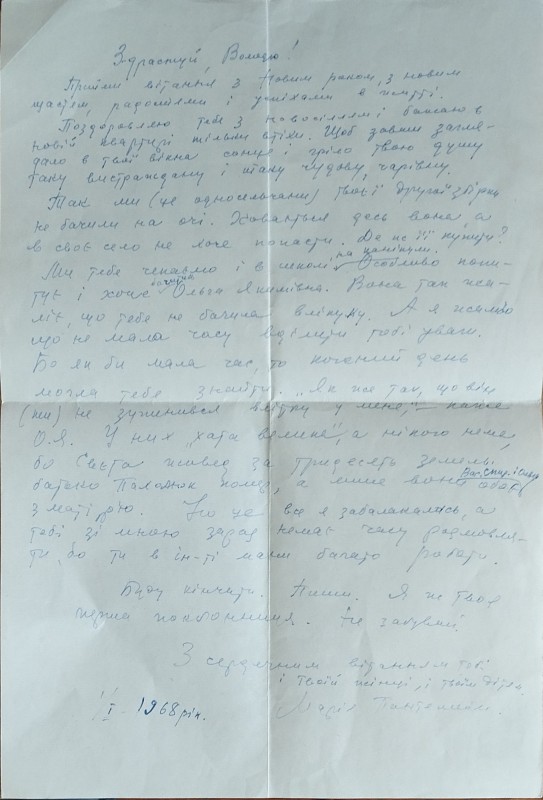 Здрастуй, Володю!
Прийми вітання з Новим роком, з новим
щастям, радощами і успіхами в житті.
Поздоровляю тебе з новосіллям і бажаю в
новій квартирі тільки втіхи. Щоб завжди загля-
дало в твої вікна сонце і гріло твою душу
таку вистраждану і таку чудову, чарівну.
Так ми (це односельчани) твоєї другої збірки
не бачили на очі. Ховається десь вона, а
в своє село не хоче попасти. Де ж її купити?
Ми тебе чекаємо і в школі, на канікули. Особливо
і хоче бачити Ольга Якимівна. Вона так жа-
ліє, що тебе не бачила влітку. А я жалію
що не мала часу вділити тобі уваги.
Бо як би мала час, то кожний день
могла тебе знайти. "Як же так, що він
(ти) не зупинився влітку у мене," – каже
О.Я. У них "хата велика", а нікого нема,
бо Свєта живе за тридесять земель,
батько помер, а лише вони
з матір'ю. Ну це все я забалакалась, а
тобі зі мною зараз немає часу розмовля-
ти, бо ти в ін-ті маєш багато роботи.
Буду кінчати. Пиши. Я ж твоя
перша поклонниця. Не забувай.
З сердечним вітанням тобі
і твоїй жінці, і твоїм дітям.
1/I – 1968 рік. Марія